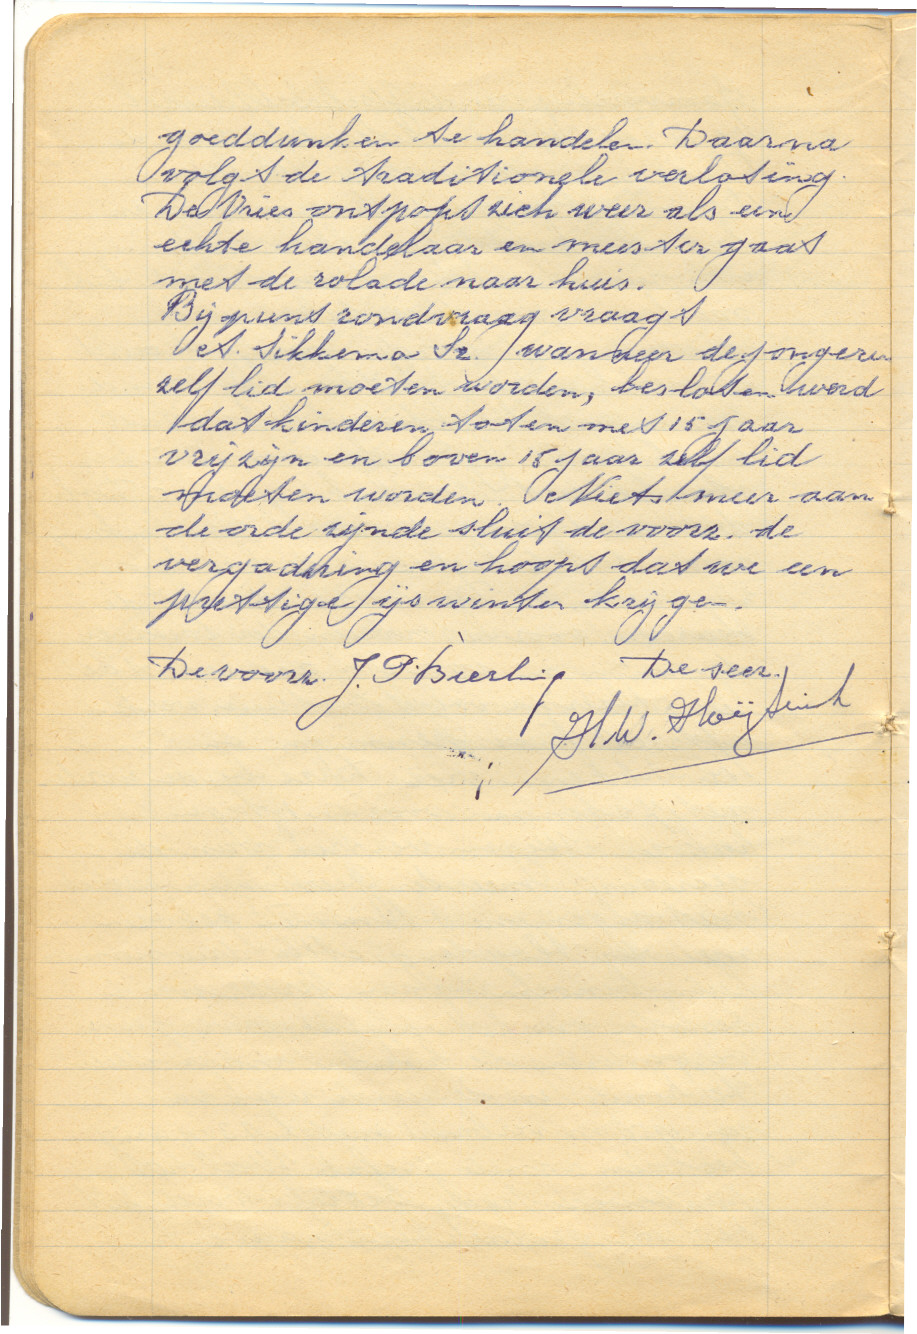 goeddunken te handelen. Daarna
volgt de traditionele verloting.
De Vries ontpopt zich weer als een
echte handelaar en meester gaat
met de rolade naar huis.
Bij punt rondvraag vraagt
A. Sikkema Sr. wanneer de jongeren
zelf lid moeten worden, besloten werd
dat kinderen tot en met 15 jaar
vrij zijn en boven 15 jaar zelf lid
moeten worden. Niets meer aan
de orde zijnde sluit de voorz. de
vergadring en hoopt dat we een
prettige ijswinter krijgen.
De voorz. J. P. Bierling De secr.
H.W.